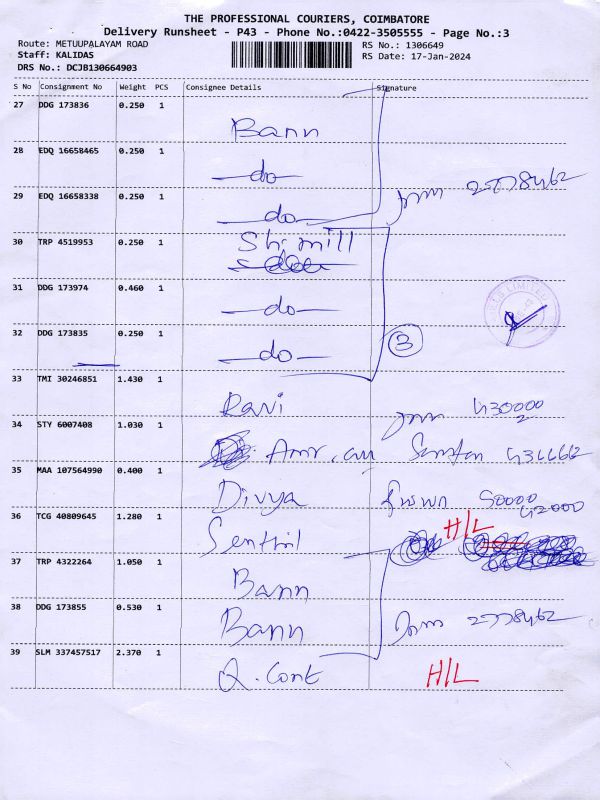 THE PROFESSIONAL COURIERS, COIMBATORE
Delivery Runsheet - P43 - Phone No.:0422-3505555 - Page No.:3
Route: METUUPALAYAM ROAD RS No.: 1306649
Staff: KALIDAS RS Date: 17-Jan-2024
DRS No.: DCJB130664903
S No Consignment No Weight PCS Consignee Details Signature
27 DDG 173836 0.250 1
Bann
28 EDQ 16658465 0.250 1
do
29 EDQ 16658338 0.250 1
do
30 TRP 4519953 0.250 1
Sh. mill
31 DDG 173974 0.460 1
do
32 DDG 173835 0.250 1
do 3
33 TMI 30246851 1.430 1
Ravi 430000
34 STY 6007408 1.030 1
35 MAA 107564990 0.400 1
Divya 90000
42000
36 TCG 40809645 1.280 1
Senthil H/L
37 TRP 4322264 1.050 1
Bann
38 DDG 173855 0.530 1
Bann
39 SLM 337457517 2.370 1
Q. Cont H/L